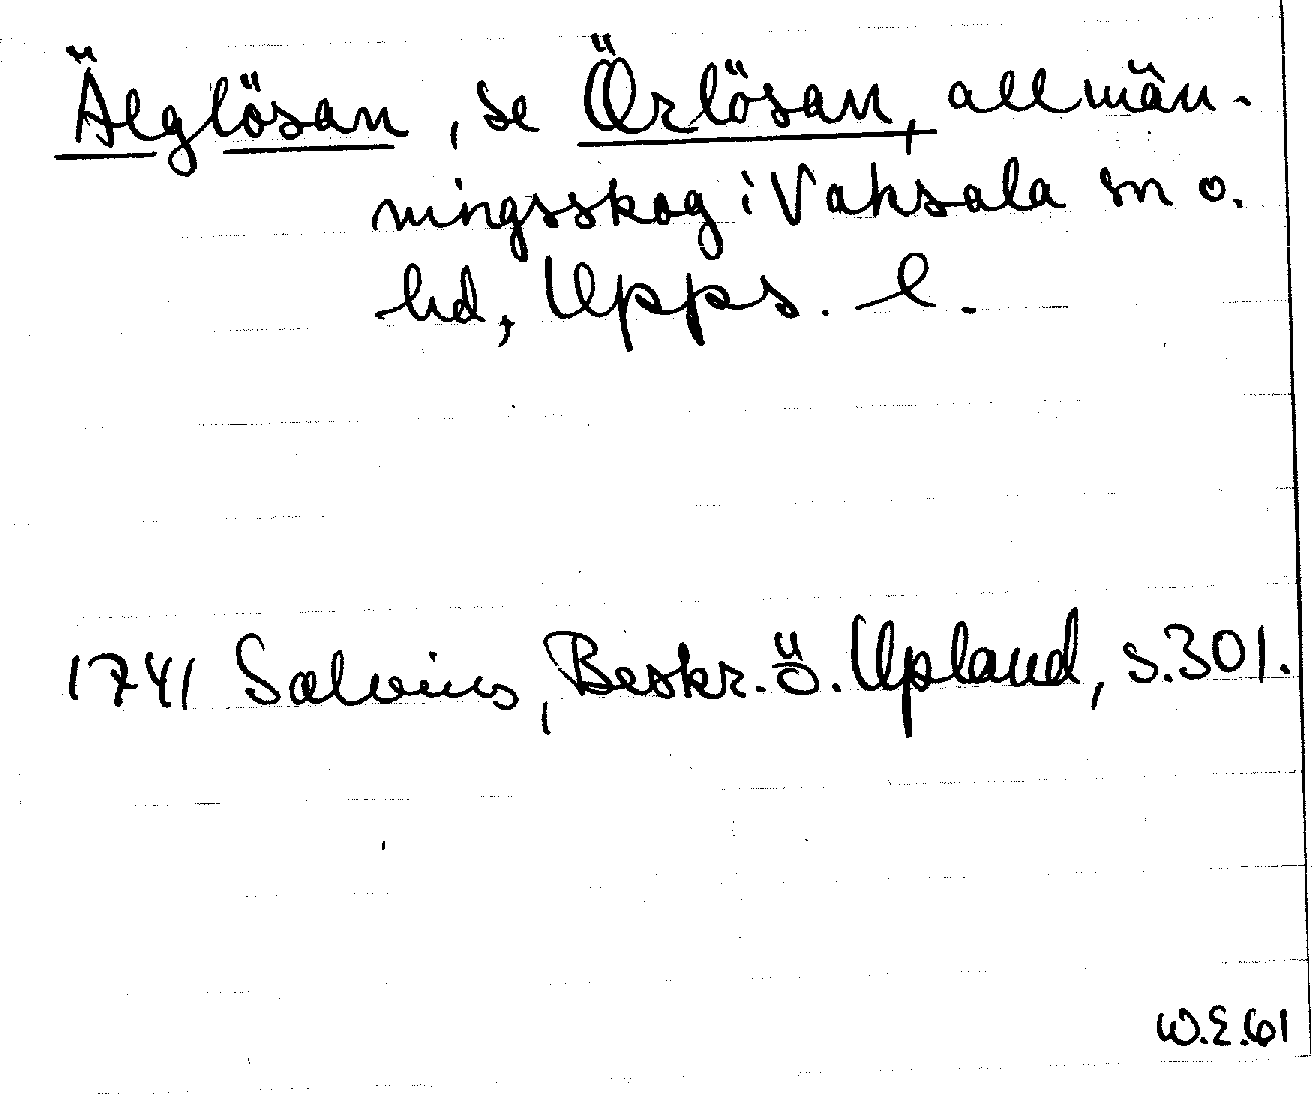 Älglösan, se Örlösan, allmän-
ningsskog i Vaksala sn o.
hd, Upps. l.
1741 Salvius, Beskr. ö. Upland, s. 301.
W.E.61